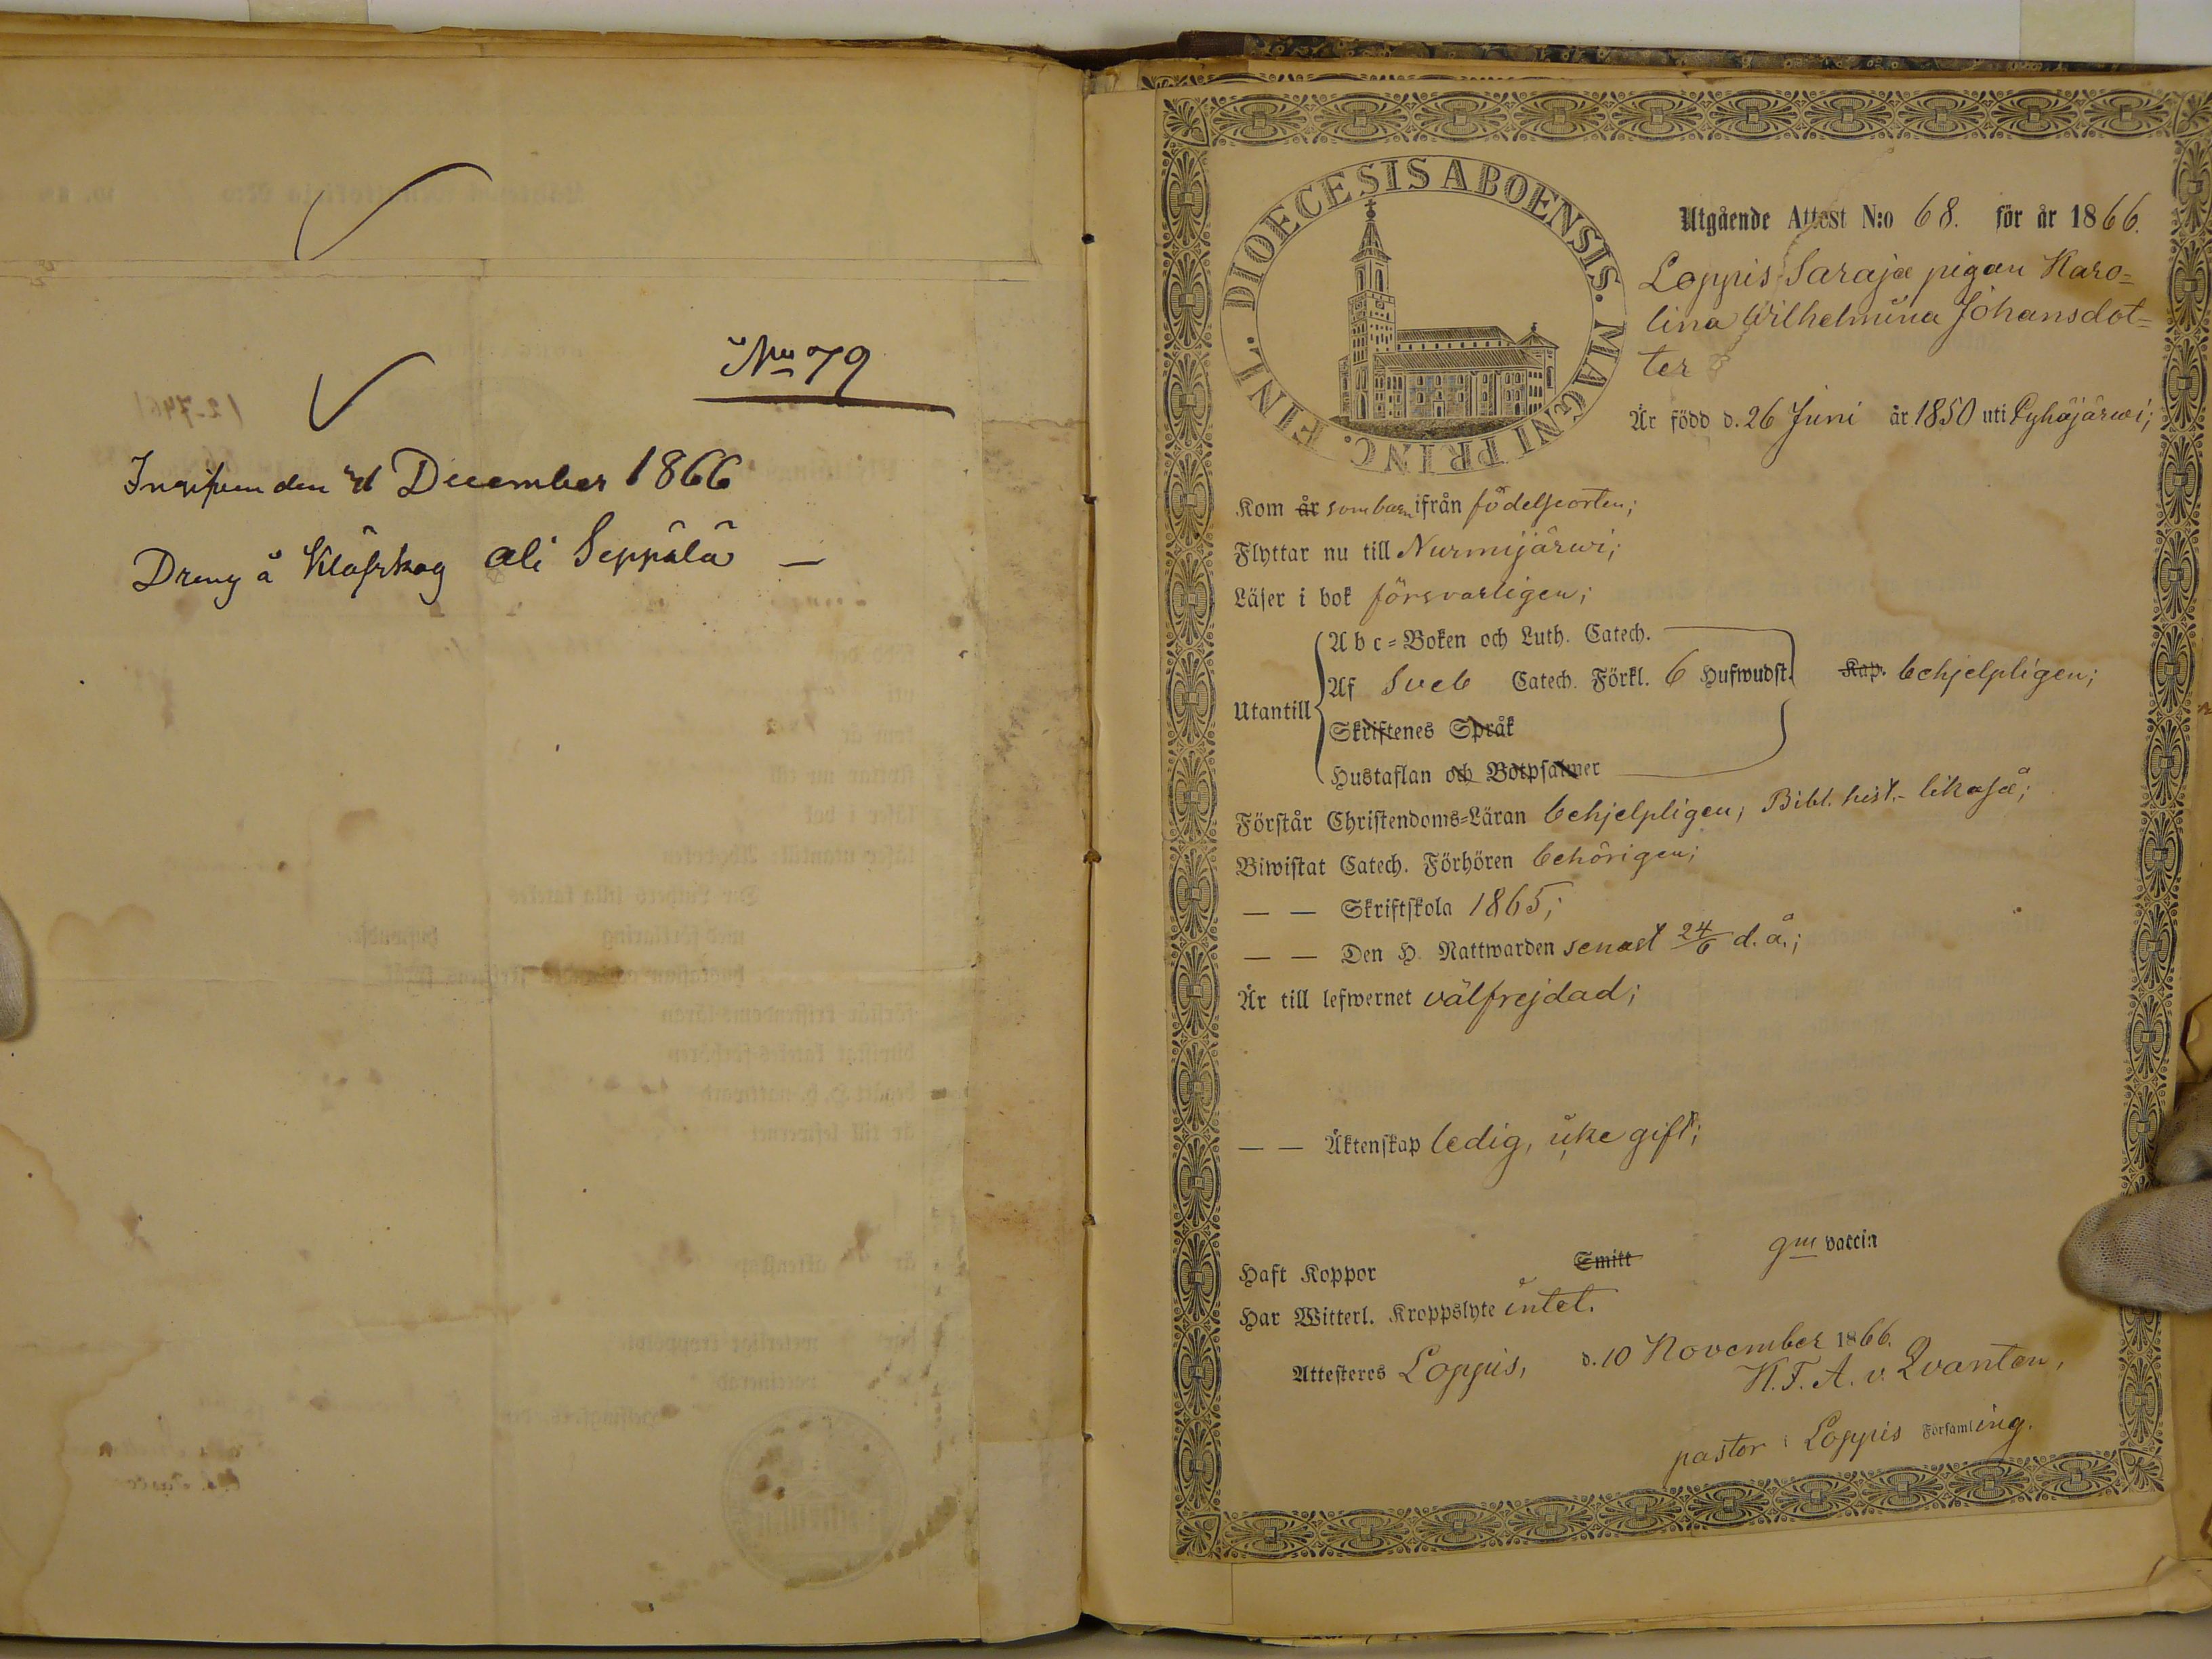 No 79
den December 1866
Dreng å Klöfskog ali Seppälä —
DIOECESIS ABOENSIS. MAGNI PRINC. FINL.
Utgående Attest N:o 68. för år 1866.
Loppis Saraja pigan Karo=
lina Wilhelmina Johansdot=
ter
Är född d. 26 Juni år 1850 uti Pyhäjärwi;
Kom år som barn ifrån födelseorten;
Flyttar nu till Nurmijärwi;
Läser i bok försvarligen;
Utantill
A b c=Boken och Luth. Catech.
Af Sveb Catech. Förkl. 6 Hufwudst. Kap. behjelpligen;
Skriftenes Språk
Hustaflan och Botpsalmer
Förstår Christendoms=Läran behjelpligen; Bibl. hist.- likaså;
Biwistat Catech. Förhören behörigen;
— — Skriftskola 1865;
— — Den H. Nattwarden senast 24/6 d. å.;
Är till lefwernet välfrejdad;
— — Äktenskap ledig, icke gift;
Haft Koppor Smitt gm vaccin
Har Witterl. Kroppslyte intet.
Attesteres Loppis, d. 10 November 1866.
K. F. A. v. Qvanten,
pastor i Loppis Församling.